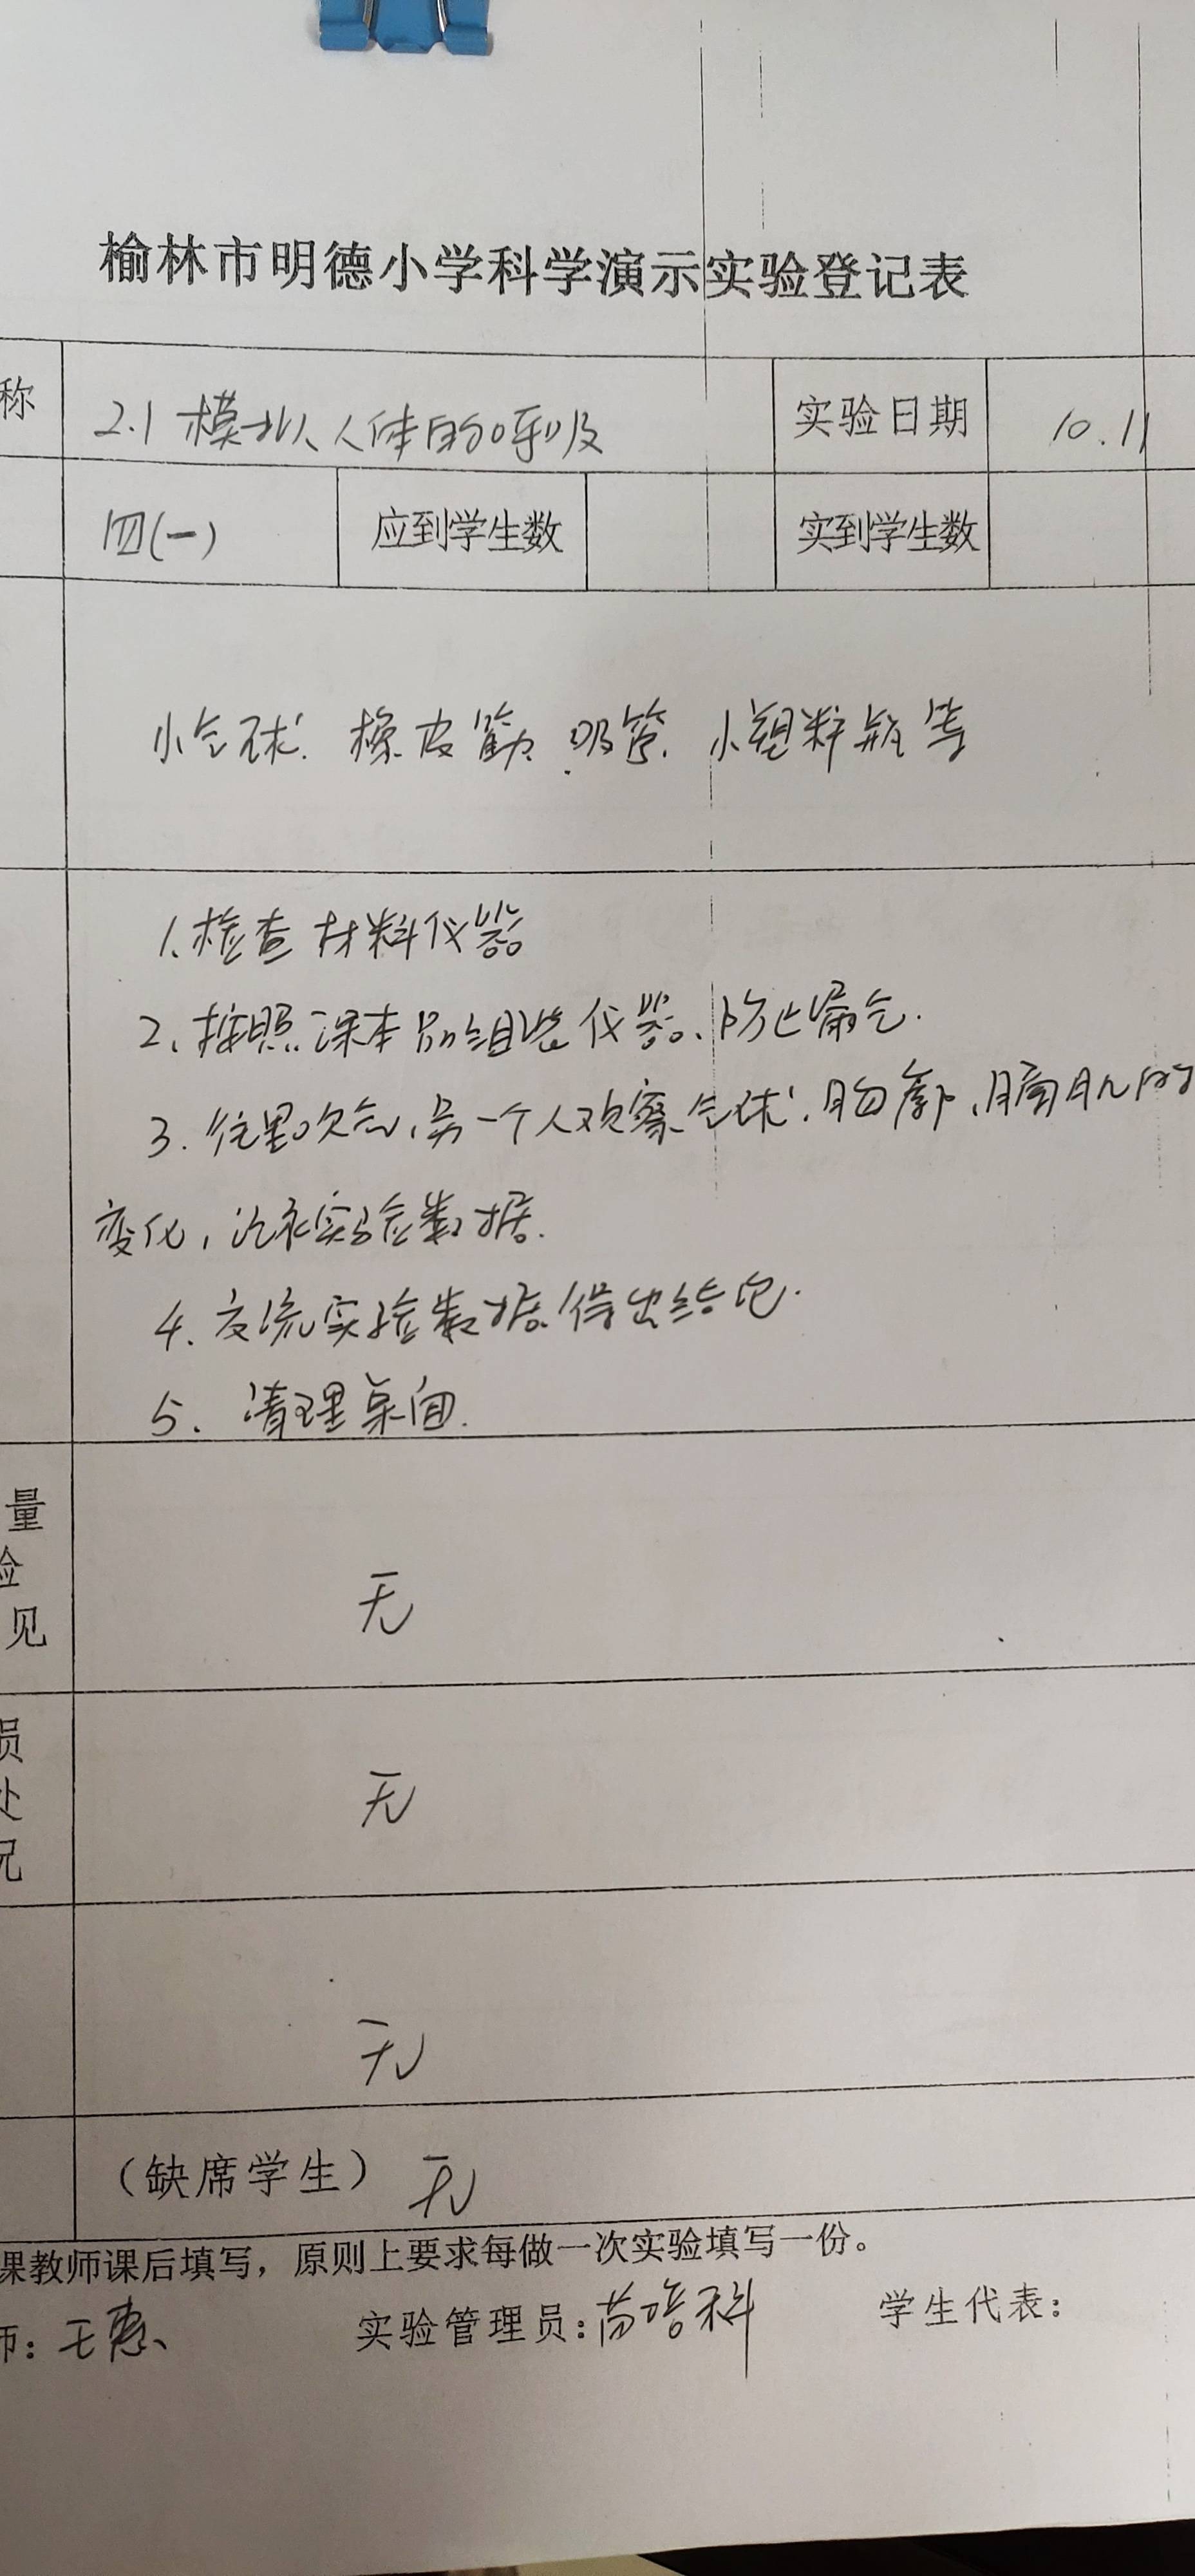 榆林市明德小学科学演示实验登记表
称 2.1 模拟人体的呼吸 实验日期 10.11
四(一) 应到学生数 实到学生数
小气球. 橡皮筋. 吸管. 小塑料瓶等
1.检查材料仪器
2、按照课本 组装仪器、防止漏气.
3. 往里吹气,另一个人观察气球、胸廓、膈肌的
变化,记录实验数据.
4.交流实验数据.得出结论.
5、清理桌面.
量
见
无
员
处
况
无
无
(缺席学生) 无
课教师课后填写,原则上要求每做一次实验填写一份。
师: 王惠 实验管理员: 苗培科 学生代表: